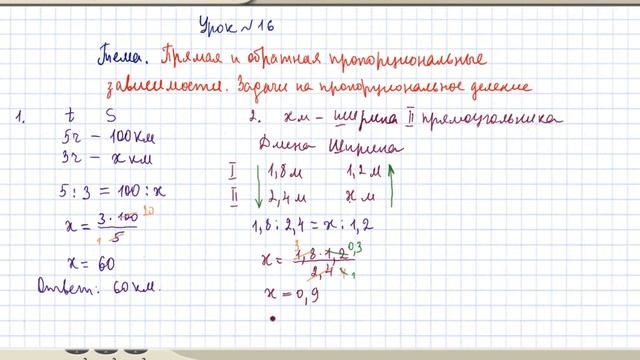 Урок №16
Тема. Прямая и обратная пропорциональные
зависимости. Задачи на пропорциональное деление
1. t S
5ч – 100 км
3ч – x км
5 : 3 = 100 : x
x = 3 · 100 20 / 1 5
x = 60
Ответ: 60 км.
2. x м – ширина II прямоугольника
Длина Ширина
I 1,8 м 1,2 м
II 2,4 м x м
1,8 : 2,4 = x : 1,2
x = 3 1,8 · 1,2 0,3 / 2,4 4 1
x = 0,9